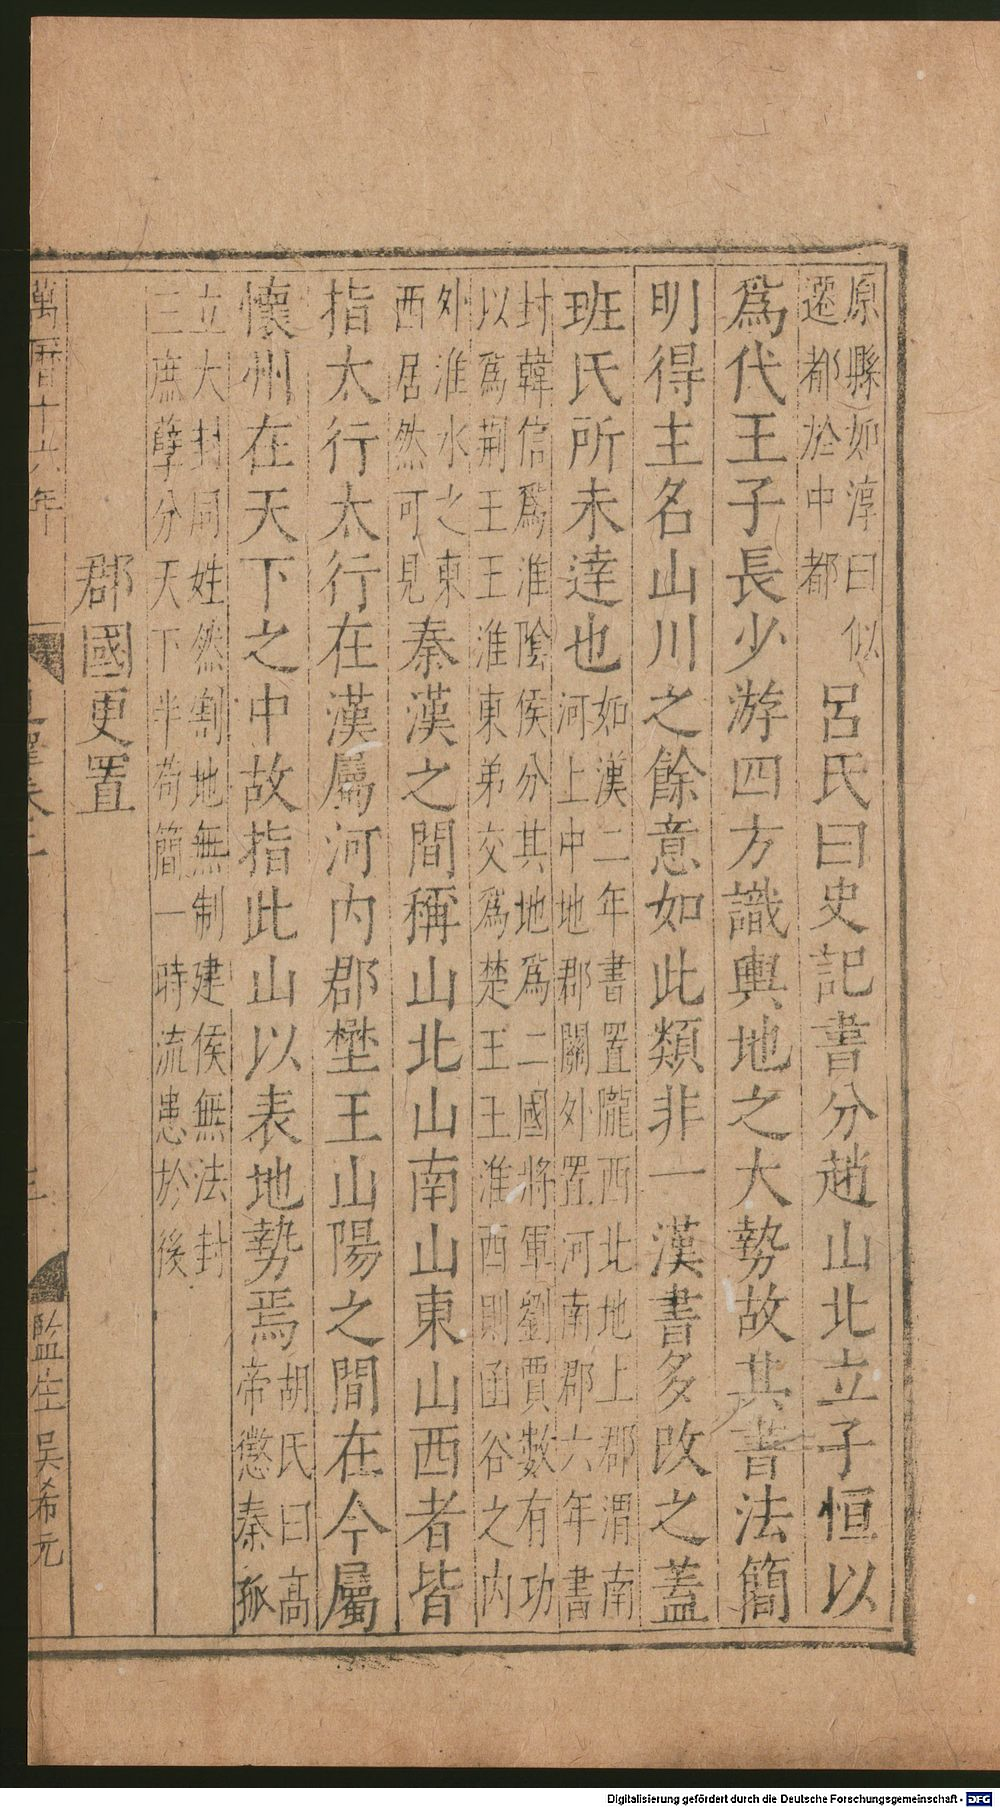 原縣如淳曰似
遷都於中都
呂氏曰史記書分趙山北立子恒以
為代王子長少游四方識輿地之大勢故其書法簡
明得主名山川之餘意如此類非一漢書多改之蓋
班氏所未達也
如漢二年書置隴西北地上郡渭南
河上中地郡關外置河南郡六年書
封韓信爲淮陰侯分其地爲二國將軍劉賈數有功
以爲荆王王淮東弟交爲楚王王淮西則函谷之内
外淮水之東
西居然可見
秦漢之間稱山北山南山東山西者皆
指太行太行在漢屬河内郡壄王山陽之間在今屬
懷州在天下之中故指此山以表地勢焉
胡氏曰高
帝懲秦孤
立大封同姓然割地無制建侯無法封
三庶孽分天下半苟簡一時流患於後
郡國更置
萬曆十六年
三
監生吴希元
Digitalisierung gefördert durch die Deutsche Forschungsgemeinschaft - DFG